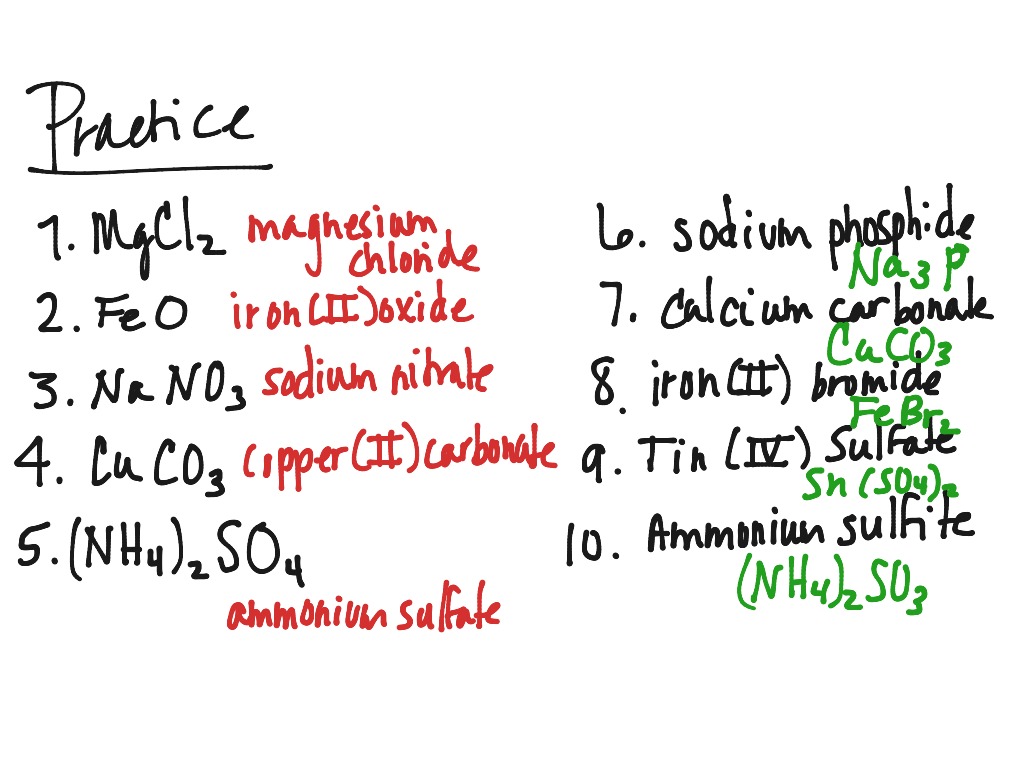 Practice
1. MgCl₂ magnesium
chloride
2. FeO iron(II)oxide
3. NaNO₃ sodium nitrate
4. CuCO₃ copper(II)carbonate
5. (NH₄)₂SO₄
ammonium sulfate
6. sodium phosphide
Na₃P
7. Calcium carbonate
CaCO₃
8. iron(II) bromide
FeBr₂
9. Tin (IV) sulfate
Sn(SO₄)₂
10. Ammonium sulfite
(NH₄)₂SO₃